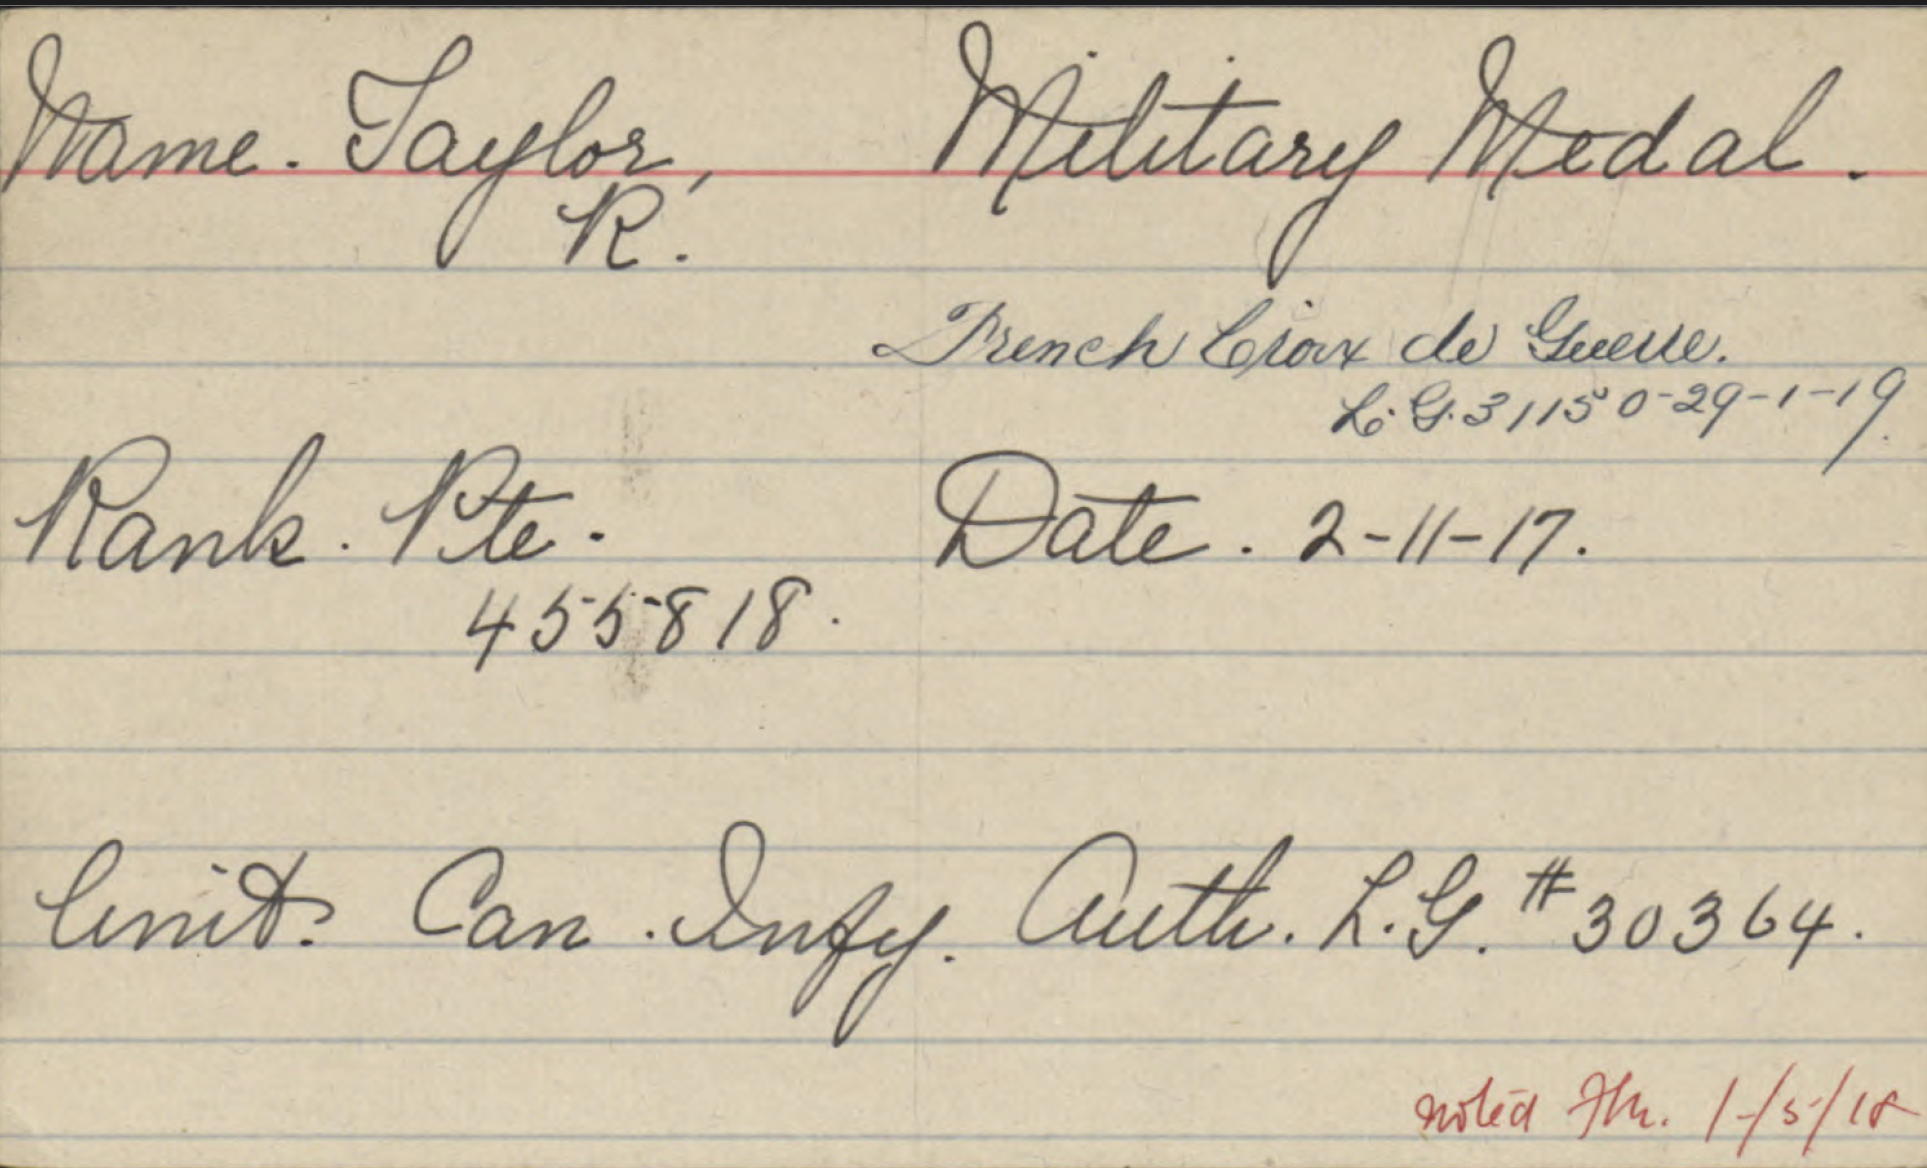 Name. Taylor, Military Medal.
R.
French Croix de Guerre.
L.G. 31150-29-1-19.
Rank. Pte. Date. 2-11-17.
455818.
Unit. Can. Infy. Auth. L.G. #30364.
noted 1/5/18